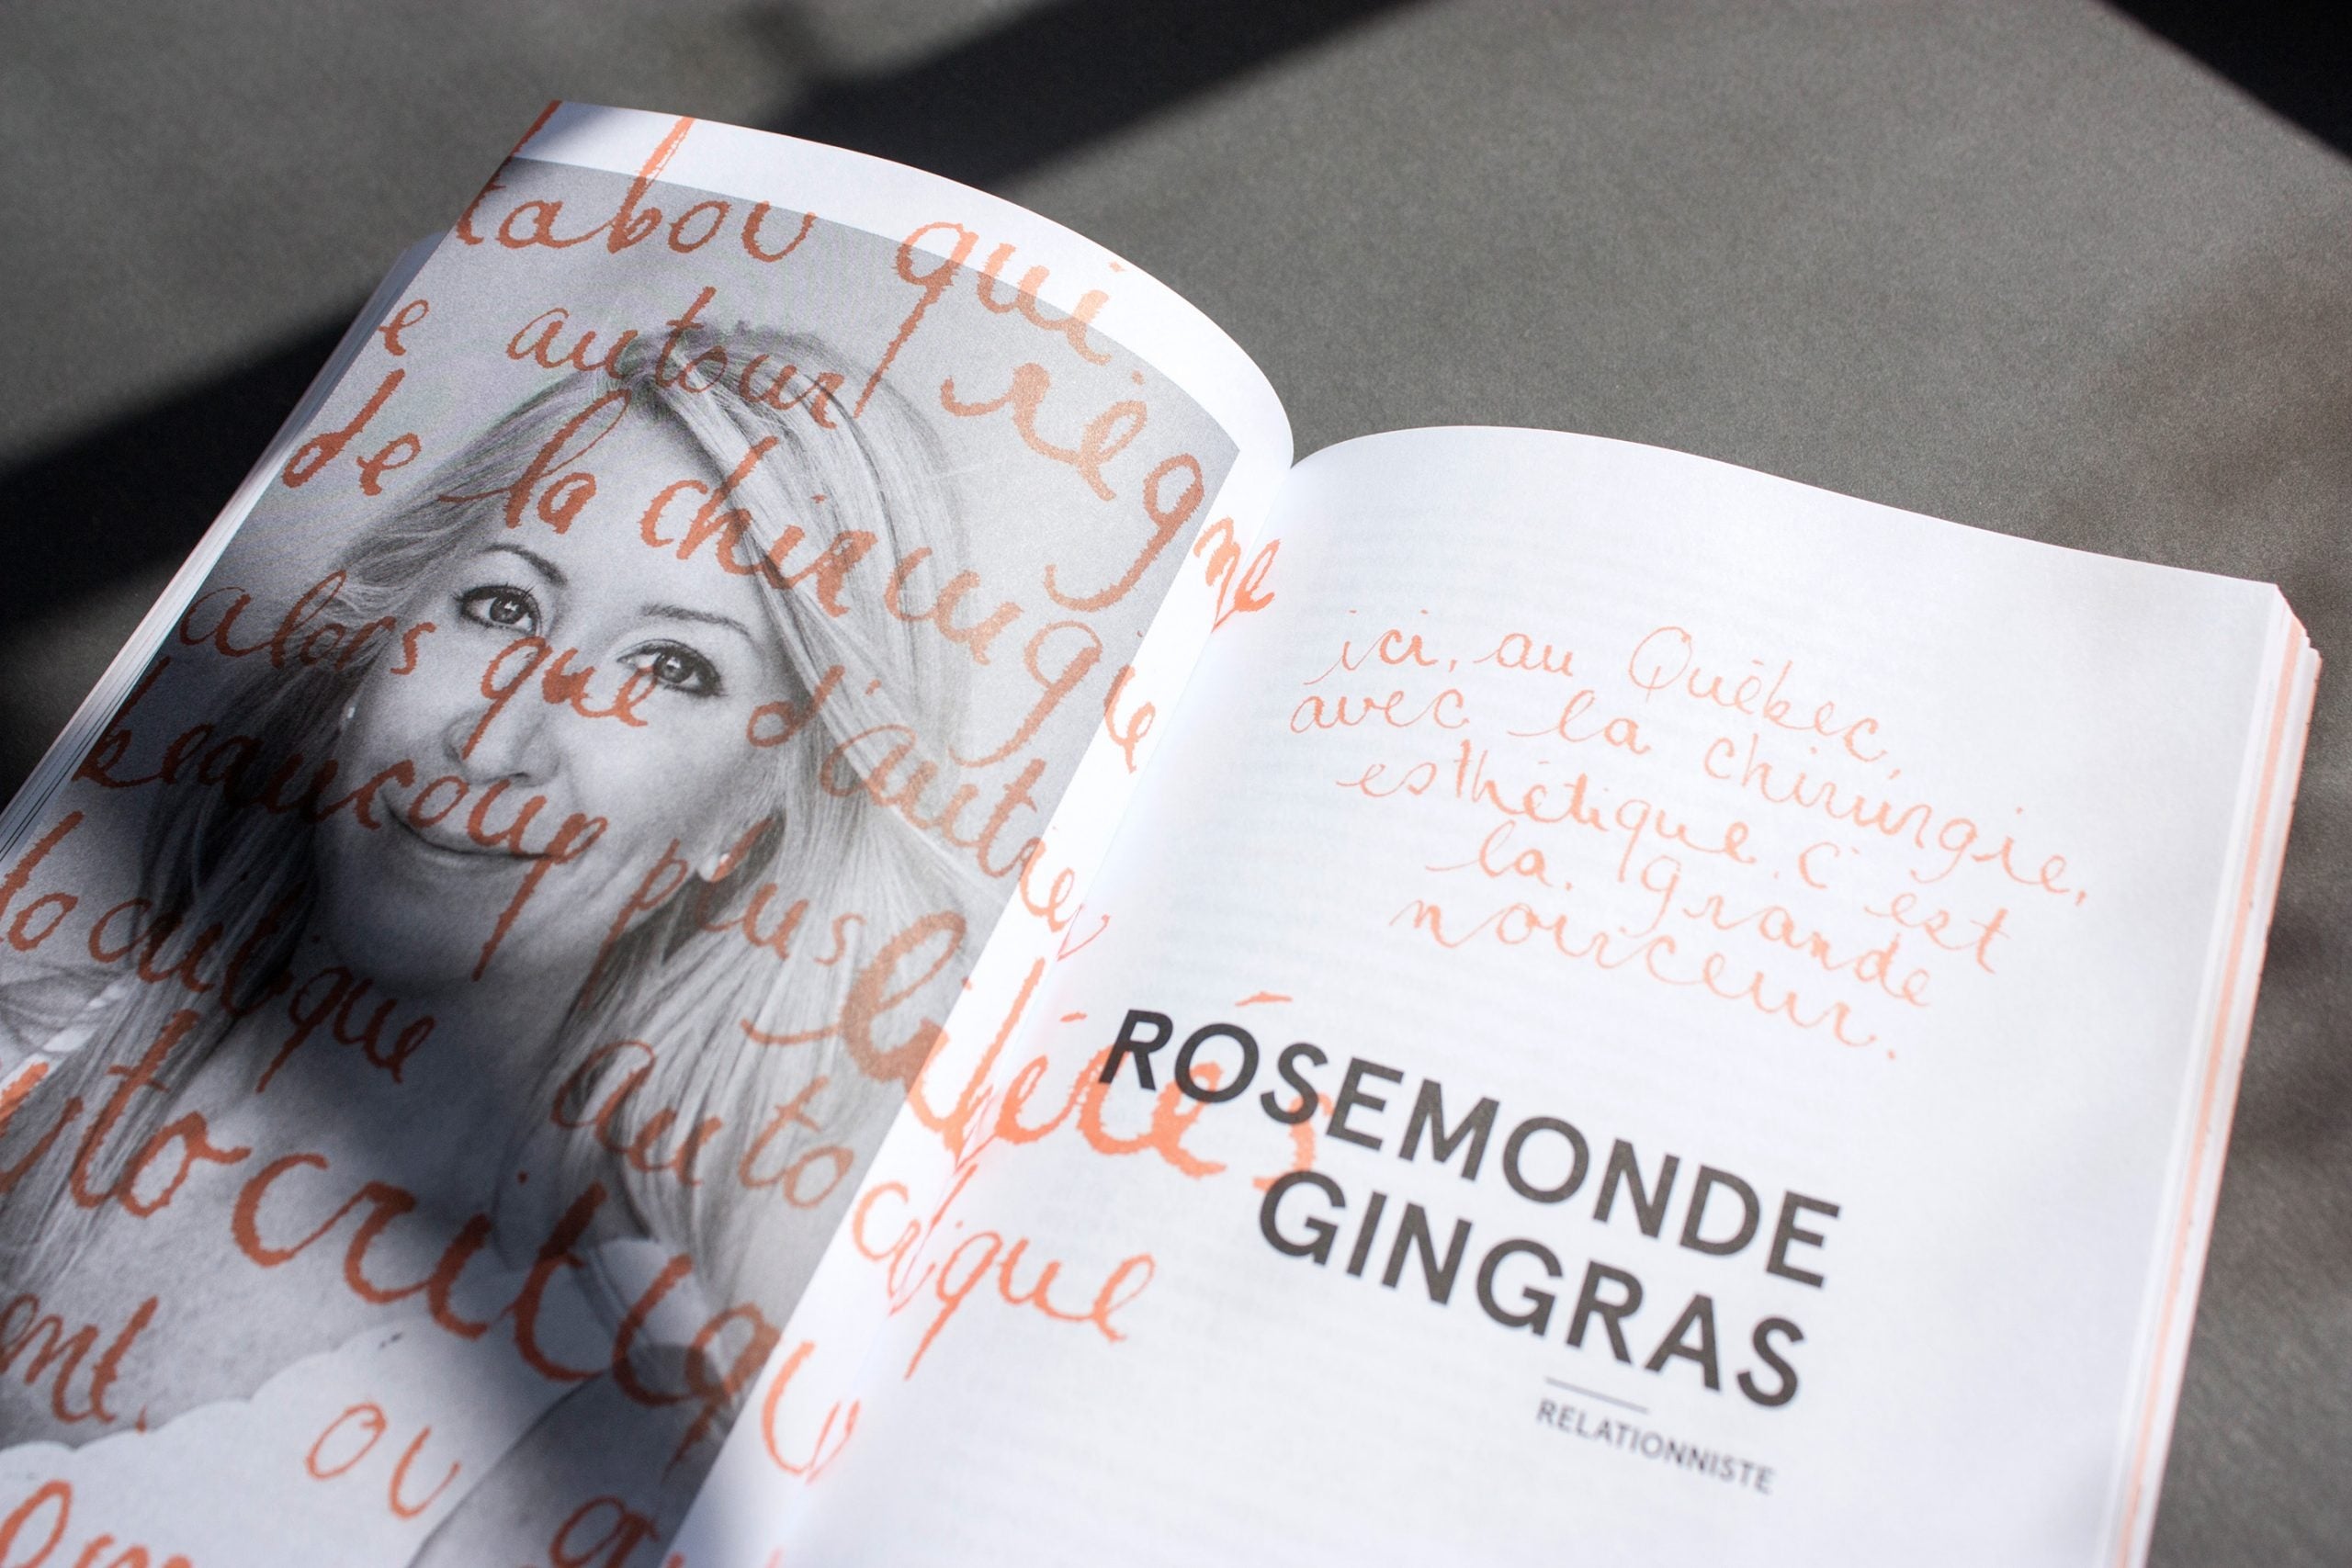 tabou qui règne
e autour
de la chirurgie
alors que d'autres
beaucoup plus libérés
autocritique
ent. ou
ici, au Québec,
avec la chirurgie,
esthétique. c'est
la. grande
noirceur.
ROSEMONDE
GINGRAS
RELATIONNISTE